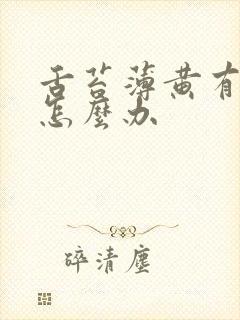 舌苔薄黄有
怎麼办
碎清塵